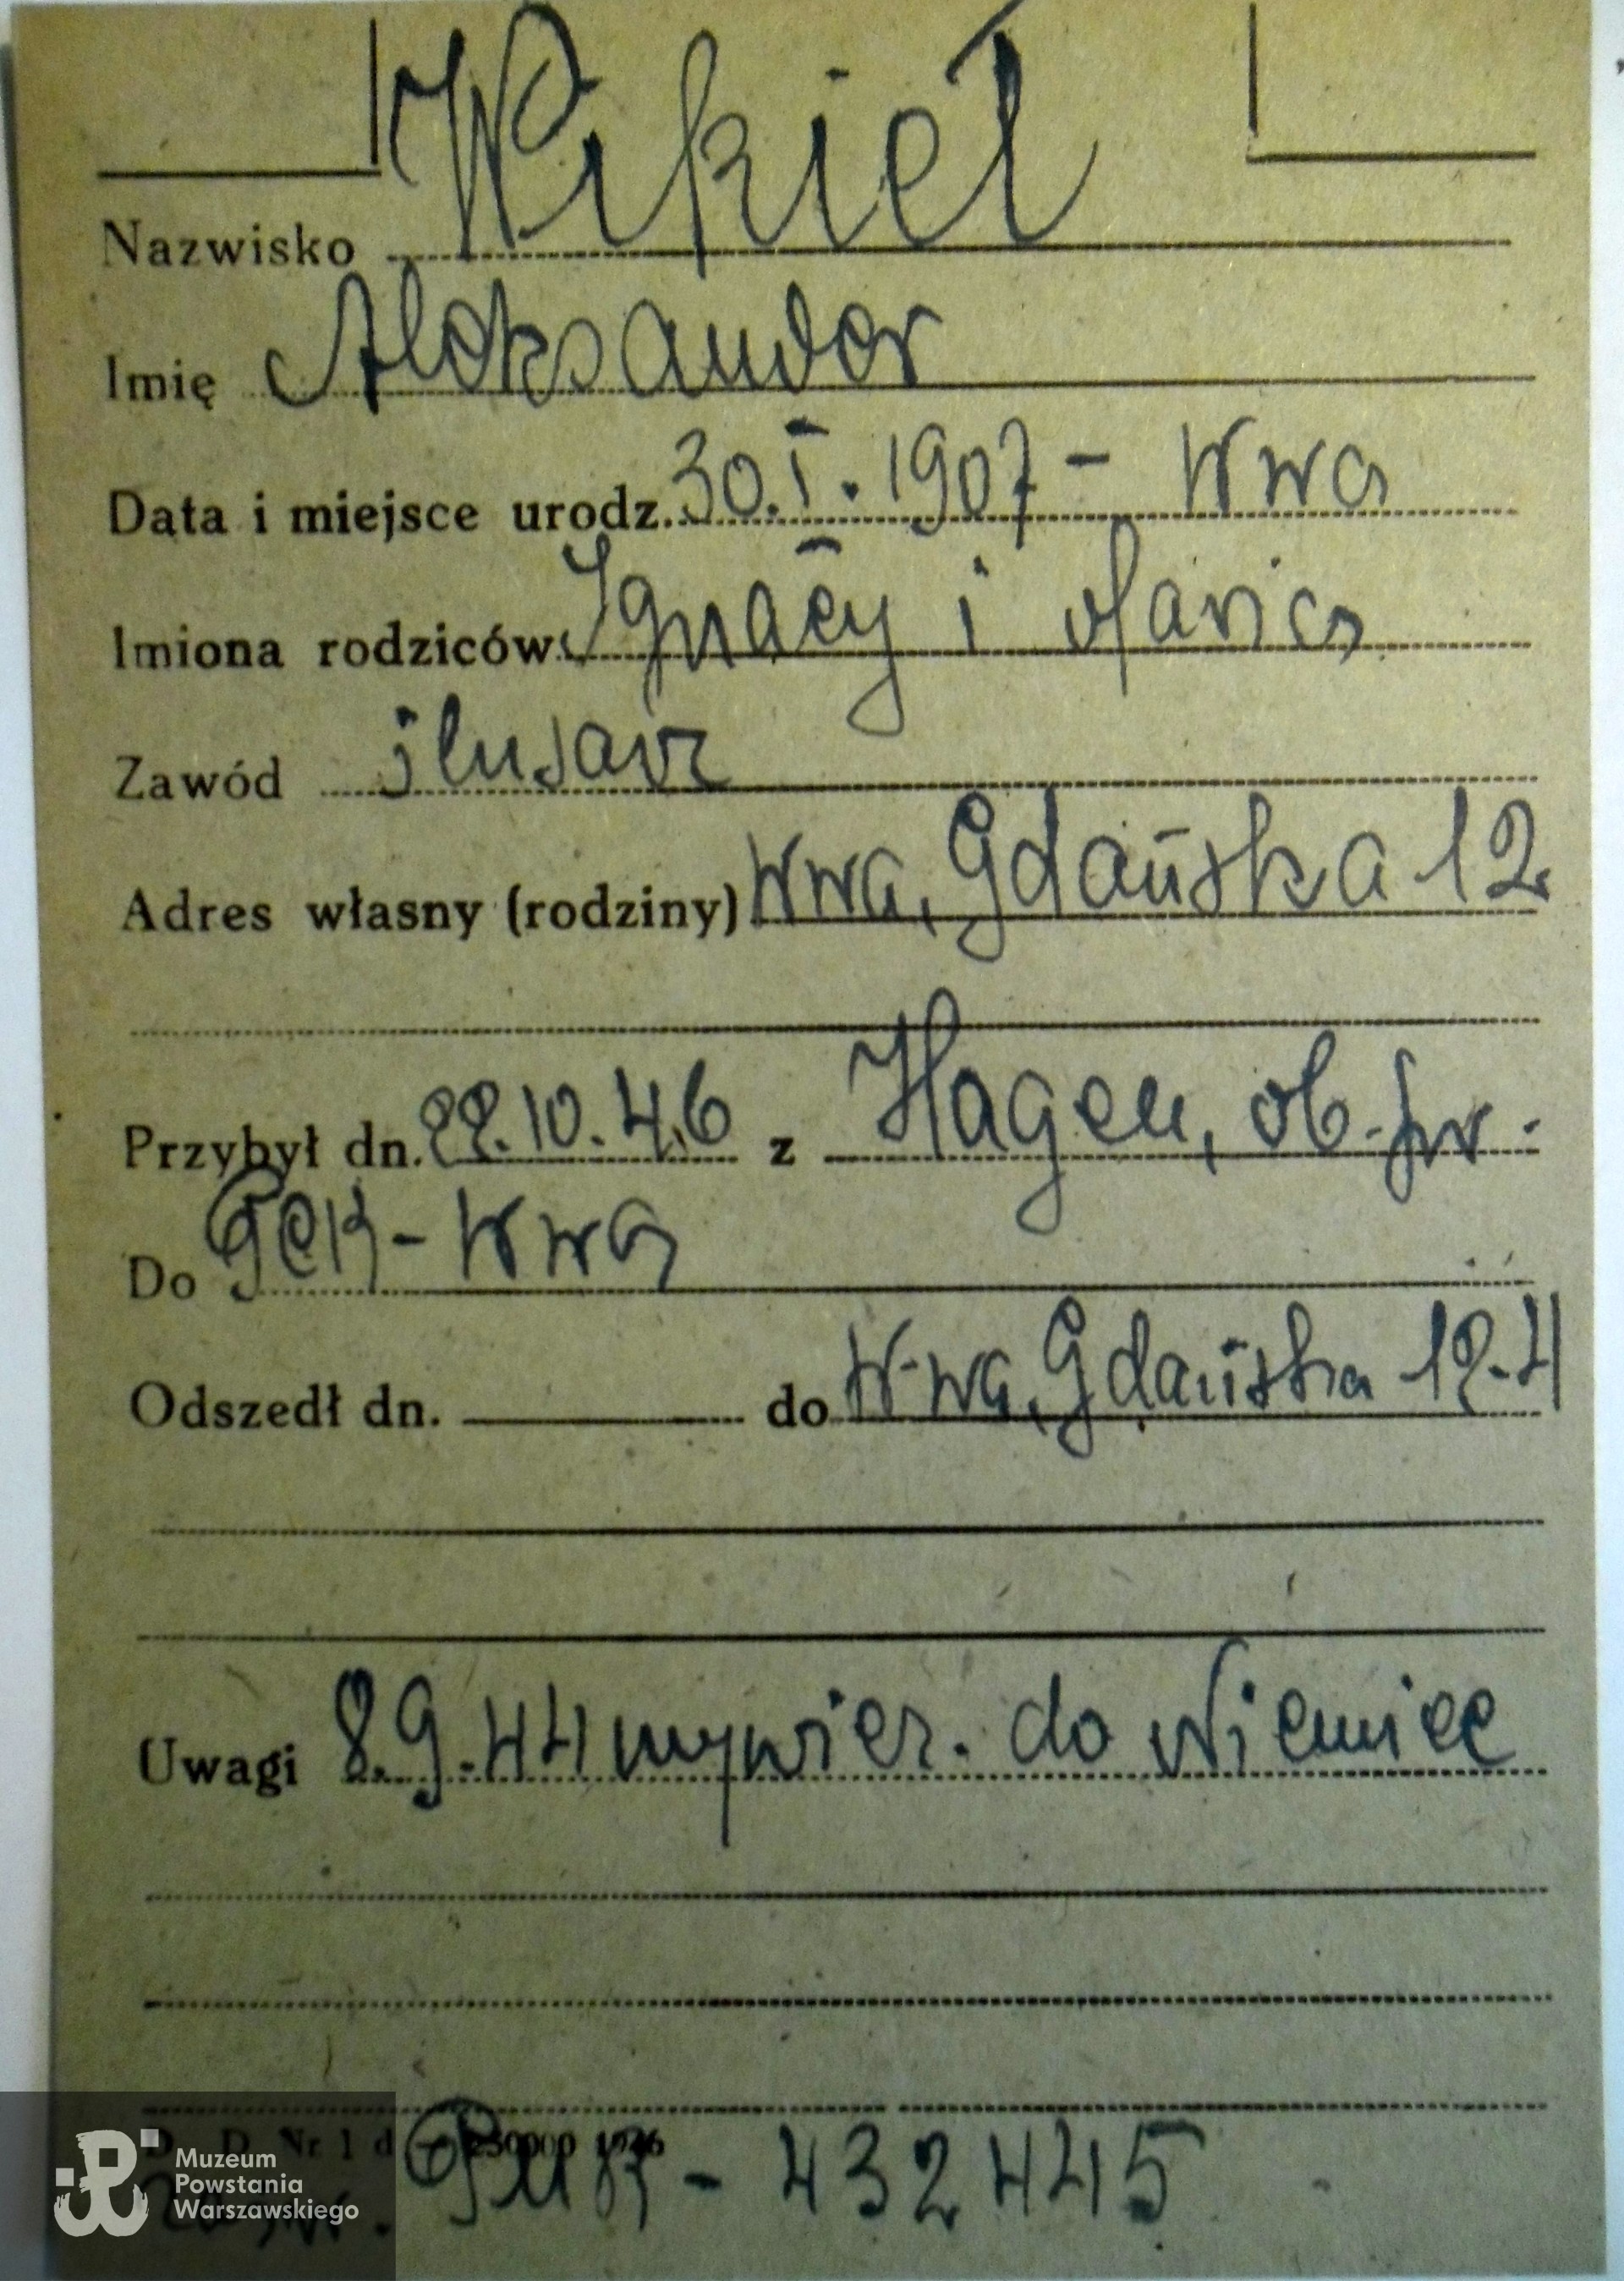 Nazwisko Wikieł
Imię Aleksander
Data i miejsce urodz. 30.I.1907 - Wwa
Imiona rodziców Ignacy i Maria
Zawód ślusarz
Adres własny (rodziny) Wwa, Gdańska 12
Przybył dn. 22.10.46 z Hagen, ob. fr.
Do PCK - Wwa
Odszedł dn. do W-wa, Gdańska 12-4
Uwagi 8.9.44 wywiez. do Niemiec
D. D. Nr 1 d 250000 1946
PUR - 432445
Muzeum
Powstania
Warszawskiego